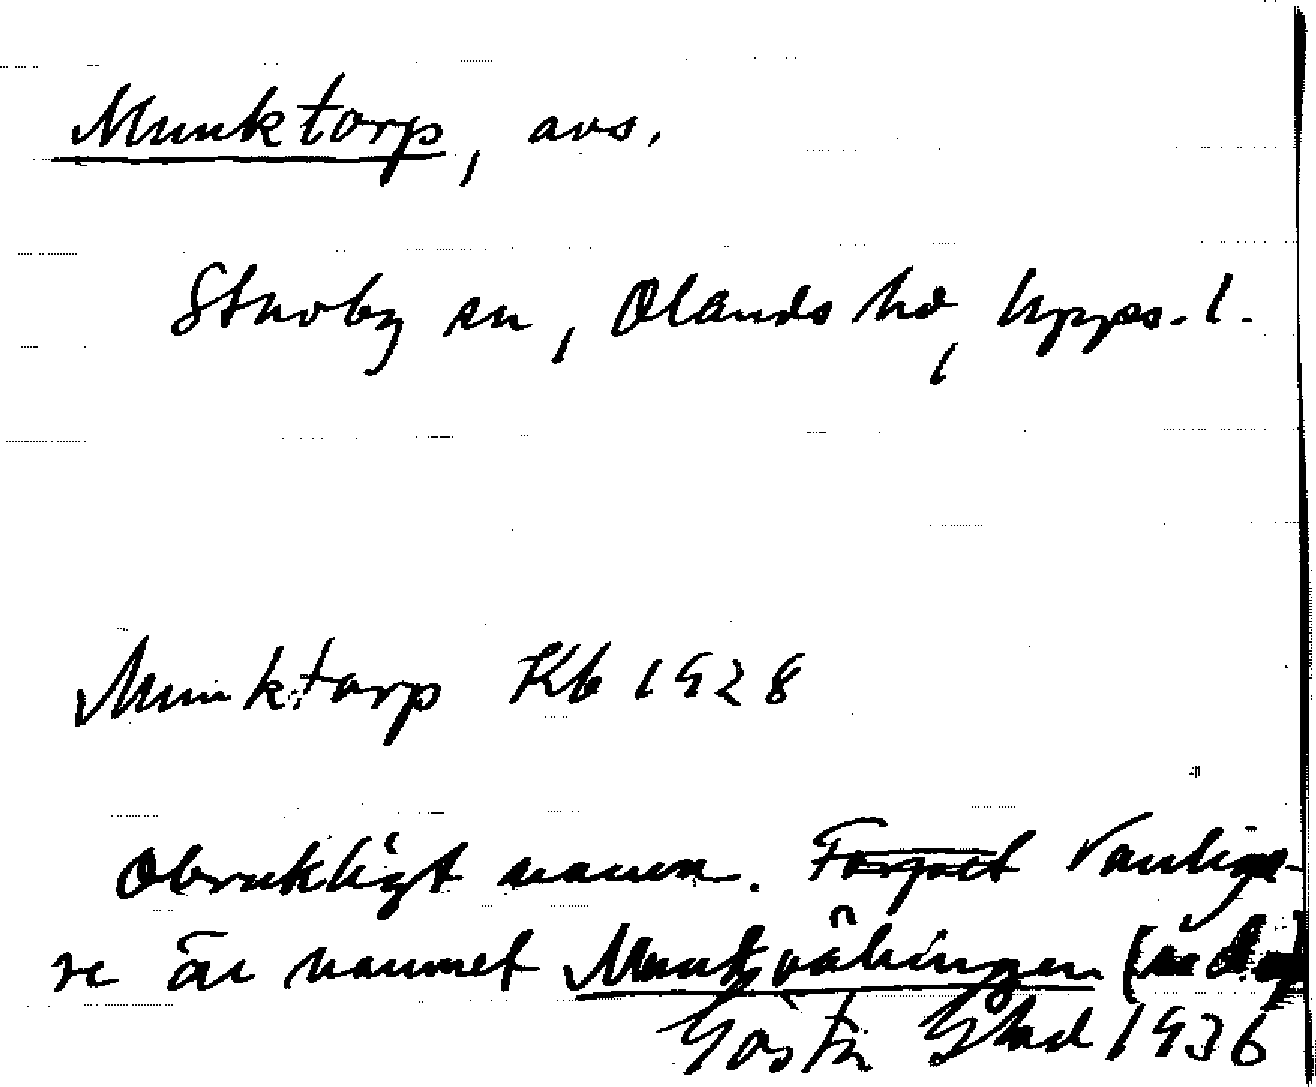 Munktorp, avs.
Stavby sn, Olands hd, Upps. l.
Munktorp Kb 1928
Obrukligt namn. Torpet Vanliga-
re är namnet Munkvävlingen
Gösta Ekad 1936